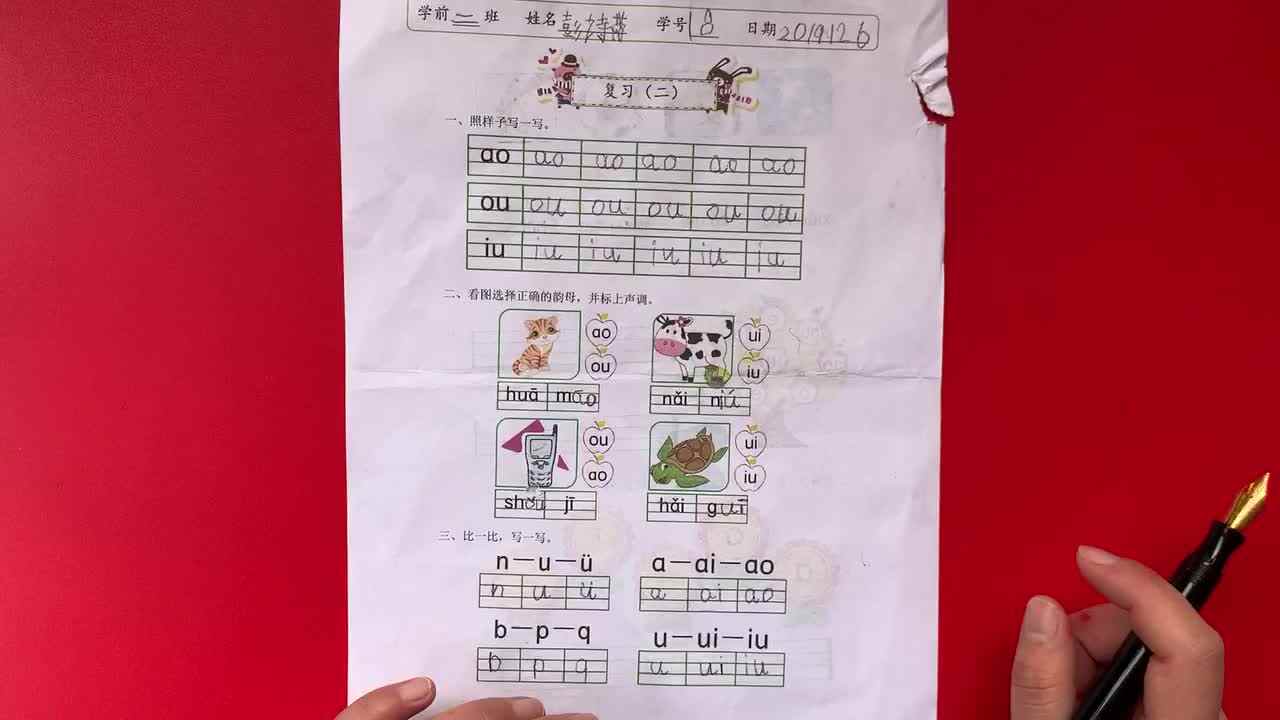 学前二班 姓名彭诗带 学号18 日期2019126
复习（二）
一、照样子写一写。
ao ao ao ao ao ao
ou ou ou ou ou ou
iu iu iu iu iu iu
二、看图选择正确的韵母，并标上声调。
ao ui
ou iu
huā māo nǎi niú
ou ui
ao iu
shǒu jī hǎi guī
三、比一比，写一写。
n—u—ü a—ai—ao
n u ü a ai ao
b—p—q u—ui—iu
b p q u ui iu